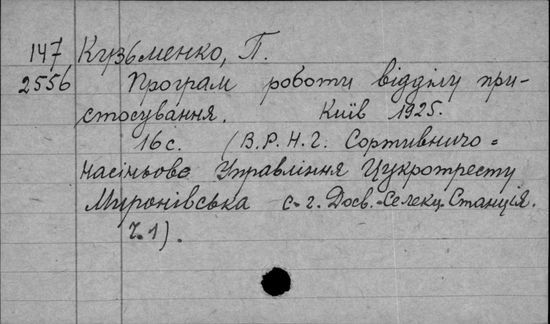 147 Кузьменко, П.
2556 Програм роботи відділу при-
стосування. Київ 1925.
16 с. (В.Р.Н.Г. Сортивничо=
насіньове Управління Цукротресту
Миронівська с.-г. Досв.-Селекц. Станція.
ч. 1).